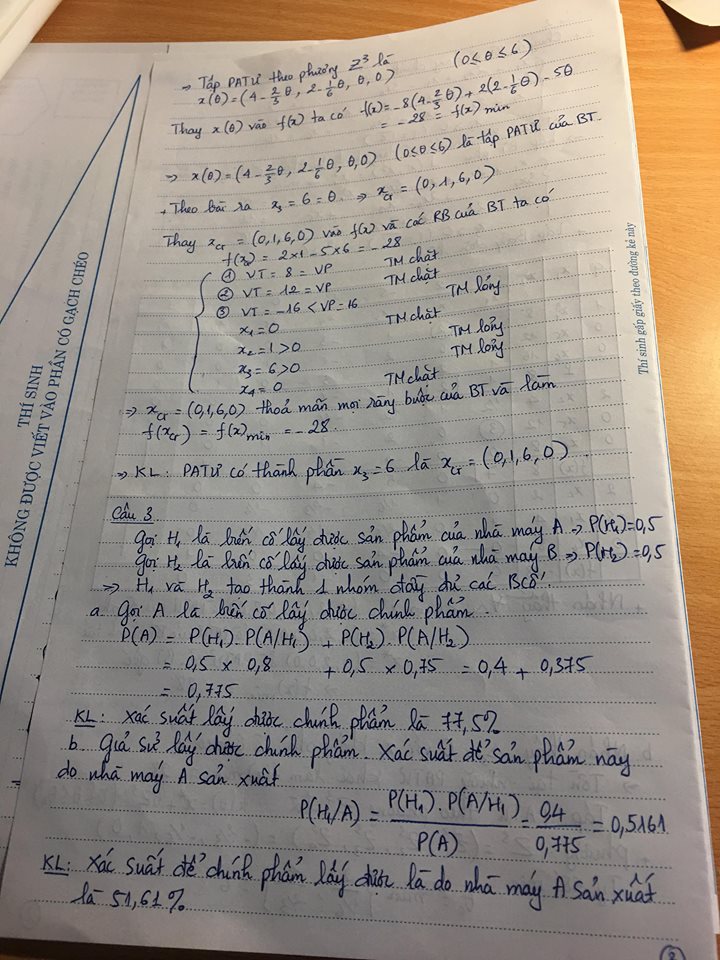 ⇒ Tập PATƯ theo phương Z³ là
x(θ) = (4 - 2/3θ, 2 - 1/6θ, θ, 0) (0 ≤ θ ≤ 6)
Thay x(θ) vào f(x) ta có f(x) = -8(4 - 2/3θ) + 2(2 - 1/6θ) - 5θ
= -28 = f(x) min
⇒ x(θ) = (4 - 2/3θ, 2 - 1/6θ, θ, 0) (0 ≤ θ ≤ 6) là tập PATƯ của BT.
+ Theo bài ra x₃ = 6 = θ ⇒ xCT = (0, 1, 6, 0)
Thay xCT = (0, 1, 6, 0) vào f(x) và các RB của BT ta có
f(x) = 2×1 - 5×6 = -28
① VT = 8 = VP TM chặt
② VT = 12 = VP TM chặt
③ VT = -16 < VP = 16 TM lỏng
x₁ = 0 TM chặt
x₂ = 1 > 0 TM lỏng
x₃ = 6 > 0 TM lỏng
x₄ = 0 TM chặt
⇒ xCT = (0, 1, 6, 0) thoả mãn mọi ràng buộc của BT và làm
f(xCT) = f(x)min = -28.
⇒ KL: PATƯ có thành phần x₃ = 6 là xCT = (0, 1, 6, 0).
Câu 3
Gọi H₁ là biến cố lấy được sản phẩm của nhà máy A ⇒ P(H₁) = 0,5
Gọi H₂ là biến cố lấy được sản phẩm của nhà máy B ⇒ P(H₂) = 0,5
⇒ H₁ và H₂ tạo thành 1 nhóm đầy đủ các Bcố.
a. Gọi A là biến cố lấy được chính phẩm.
P(A) = P(H₁).P(A/H₁) + P(H₂).P(A/H₂)
= 0,5 × 0,8 + 0,5 × 0,75 = 0,4 + 0,375
= 0,775
KL: Xác suất lấy được chính phẩm là 77,5%
b. Giả sử lấy được chính phẩm. Xác suất để sản phẩm này
do nhà máy A sản xuất
P(H₁/A) = P(H₁).P(A/H₁) / P(A) = 0,4 / 0,775 = 0,5161
KL: Xác suất để chính phẩm lấy được là do nhà máy A sản xuất
là 51,61%
8
THÍ SINH
KHÔNG ĐƯỢC VIẾT VÀO PHẦN CÓ GẠCH CHÉO
Thí sinh gấp giấy theo đường kẻ này